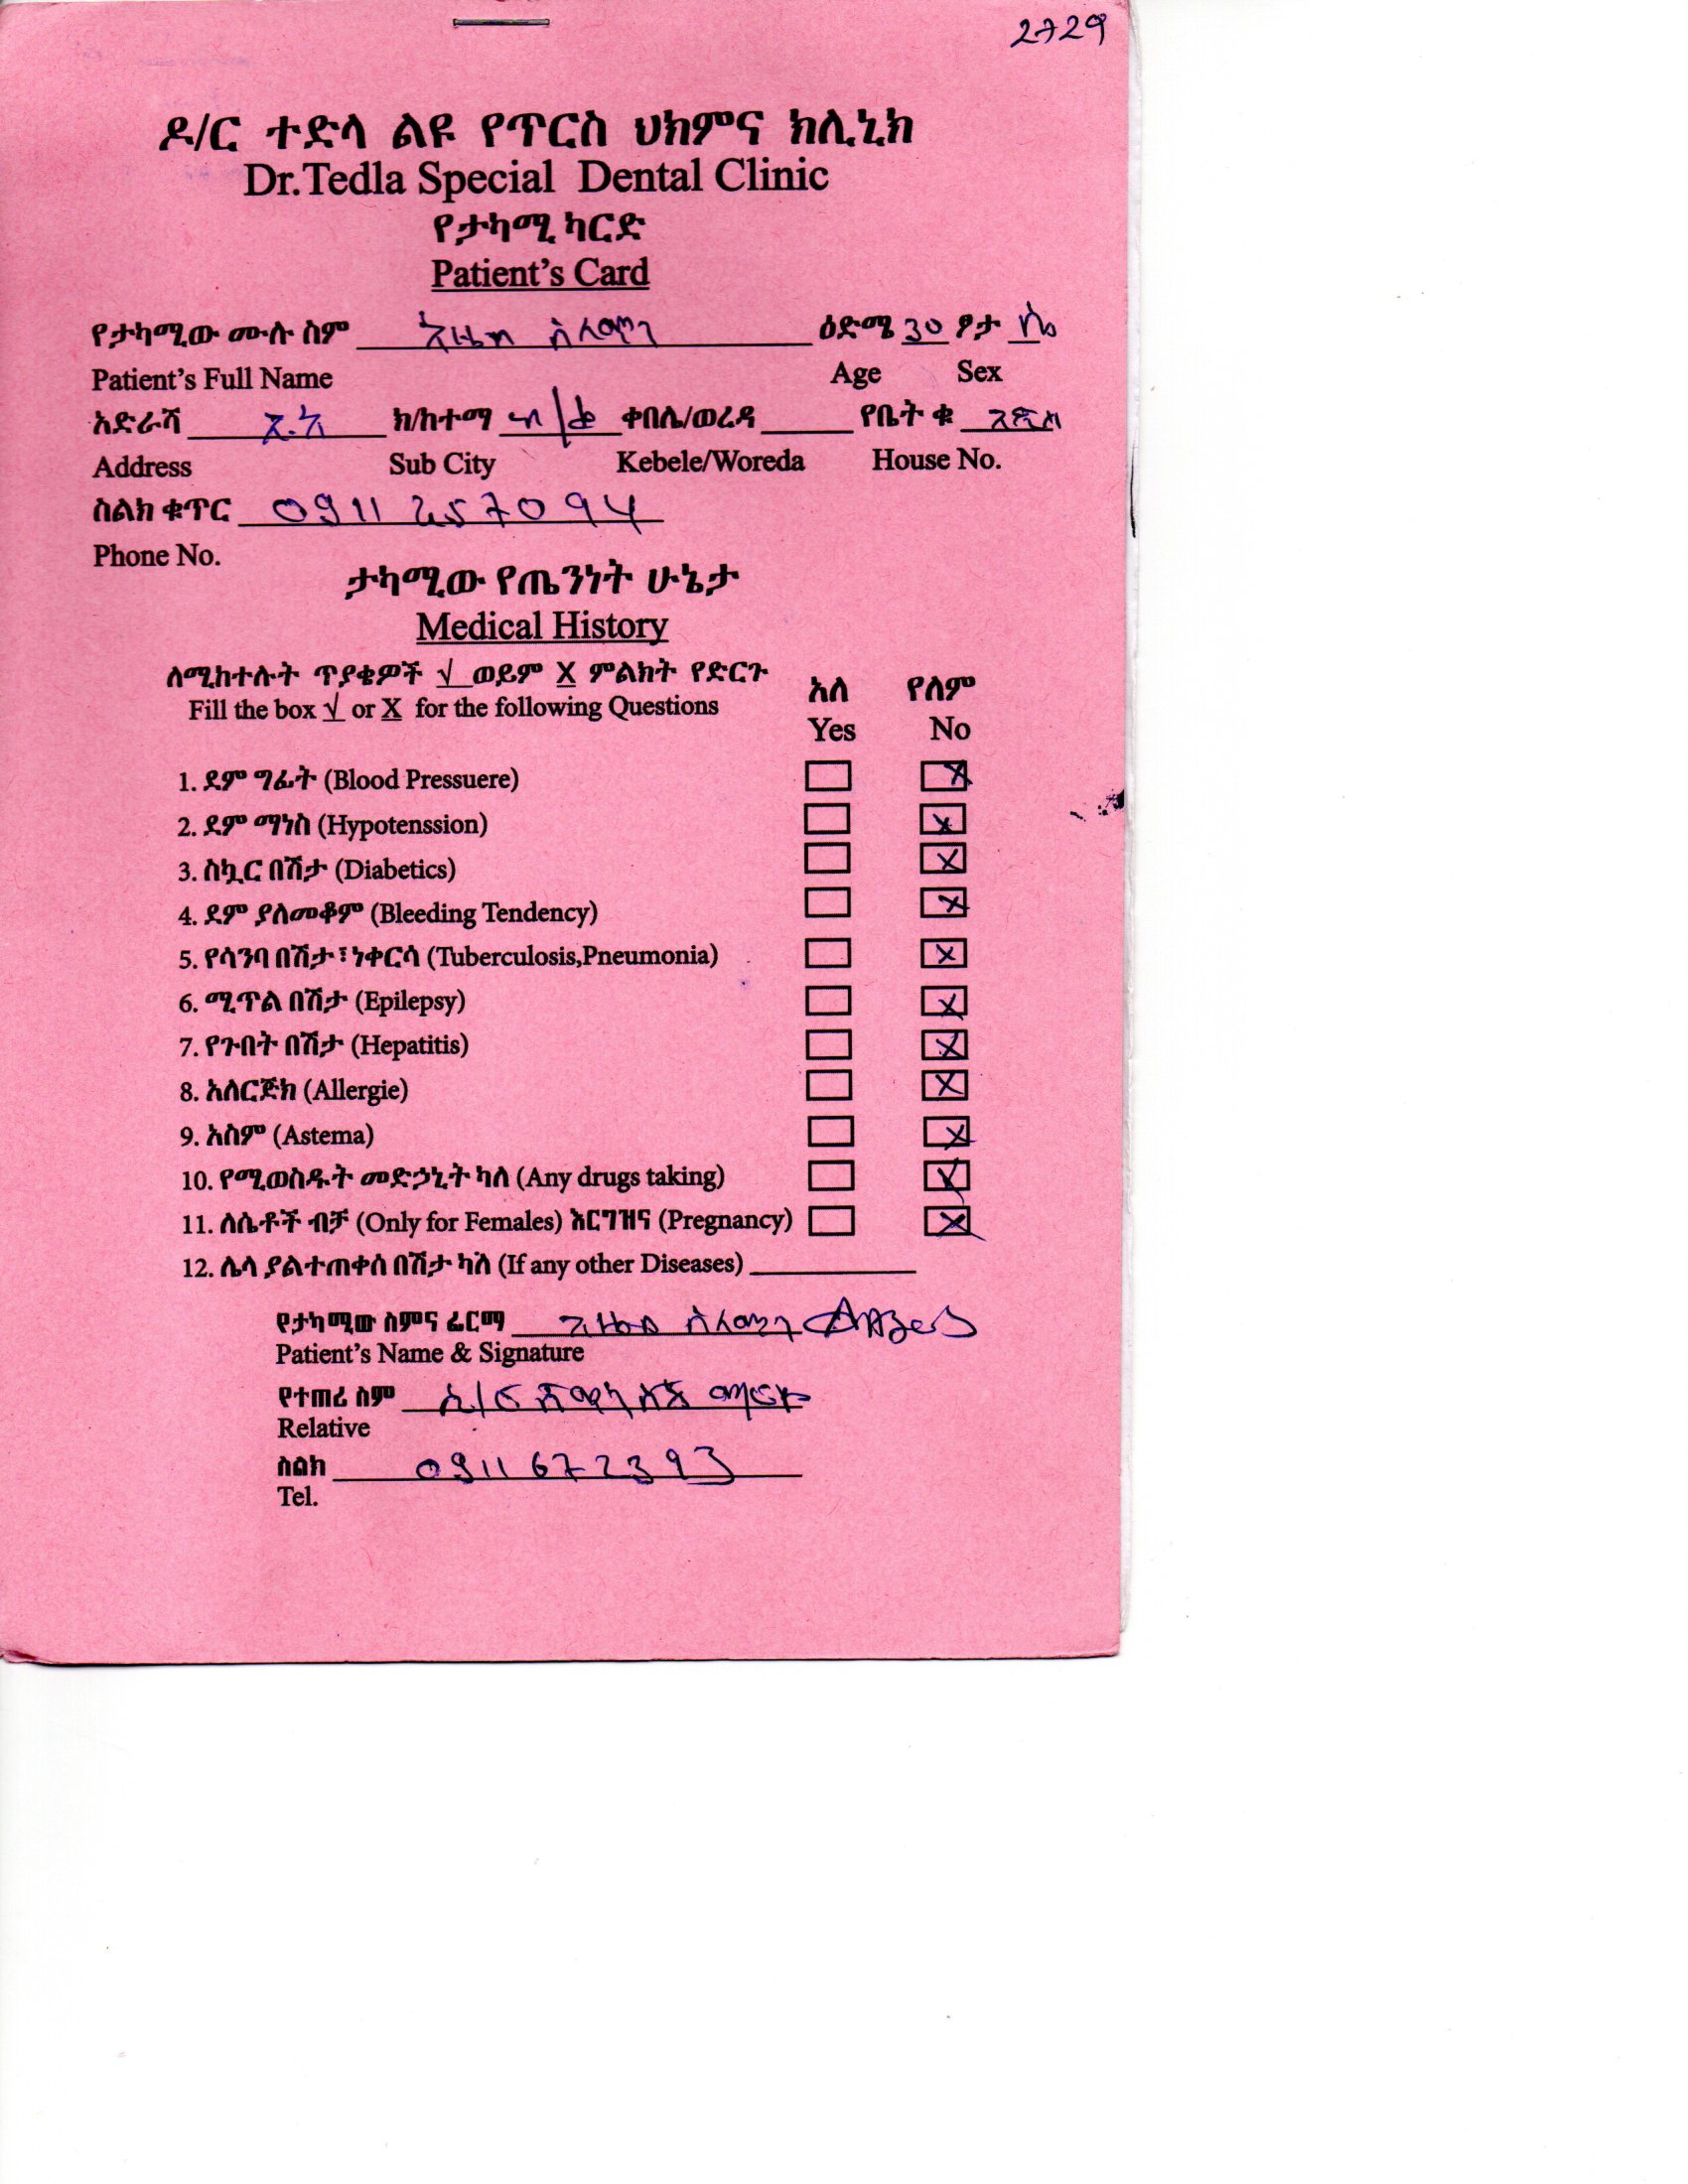 2729
ዶ/ር ተድላ ልዩ የጥርስ ህክምና ክሊኒክ
Dr.Tedla Special Dental Clinic
የታካሚ ካርድ
Patient's Card
የታካሚው ሙሉ ስም ዕድሜ 30 ፆታ ሴ
Patient's Full Name Age Sex
አድራሻ አ.አ ክ/ከተማ ቀበሌ/ወረዳ የቤት ቁ አዲስ
Address Sub City Kebele/Woreda House No.
ስልክ ቁጥር 0911 257094
Phone No.
ታካሚው የጤንነት ሁኔታ
Medical History
ለሚከተሉት ጥያቄዎች √ ወይም X ምልክት የድርጉ
Fill the box √ or X for the following Questions
አለ የለም
Yes No
1. ደም ግፊት (Blood Pressuere) X
2. ደም ማነስ (Hypotenssion) X
3. ስኳር በሽታ (Diabetics) X
4. ደም ያለመቆም (Bleeding Tendency) X
5. የሳንባ በሽታ፣ነቀርሳ (Tuberculosis,Pneumonia) X
6. ሚጥል በሽታ (Epilepsy) X
7. የጉበት በሽታ (Hepatitis) X
8. አለርጅክ (Allergie) X
9. አስም (Astema) X
10. የሚወስዱት መድኃኒት ካለ (Any drugs taking) √
11. ለሴቶች ብቻ (Only for Females) እርግዝና (Pregnancy) X
12. ሌላ ያልተጠቀሰ በሽታ ካለ (If any other Diseases)
የታካሚው ስምና ፊርማ
Patient's Name & Signature
የተጠሪ ስም
Relative
ስልክ 0911 672393
Tel.